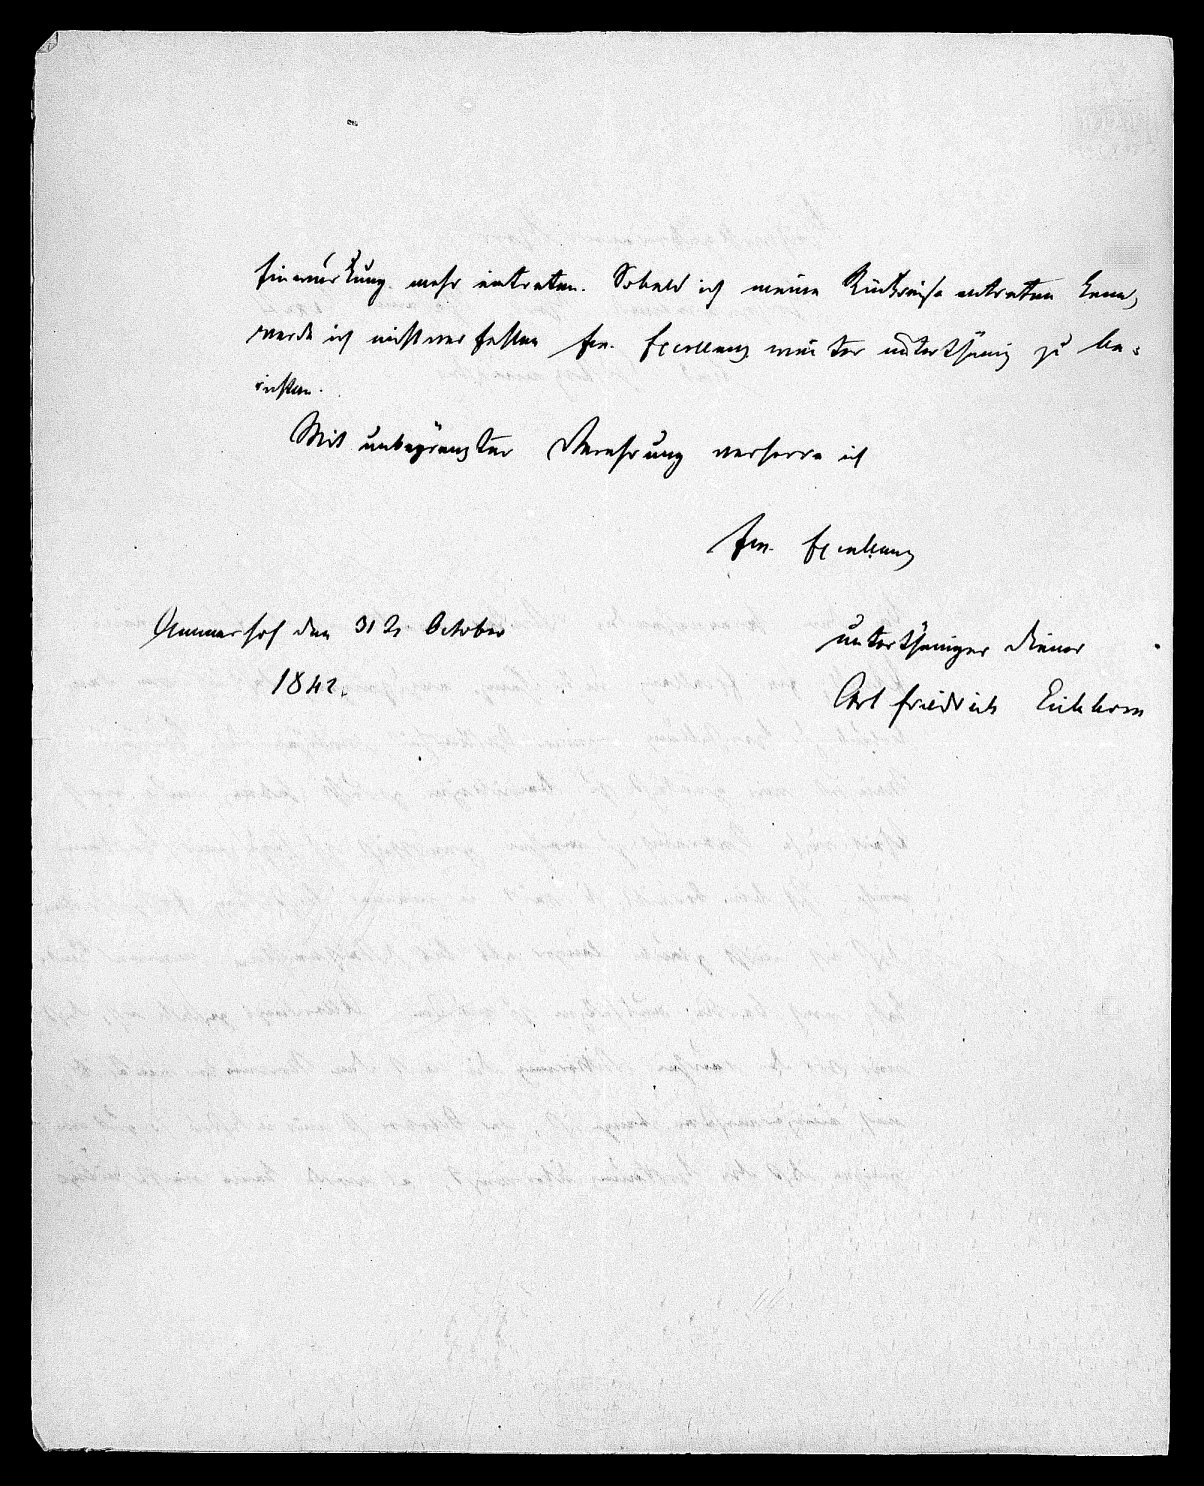 Einwürkung mehr eintreten. Sobald ich meine Rückreise antreten kann,
werde ich nicht verfehlen Ew. Excellenz weiter unterthänig zu be-
richten.
Mit unbegränzter Verehrung verharre ich
Ew. Excellenz
Ammerhof den 31 October
1842.
unterthäniger Diener
Carl Friedrich Eichhorn